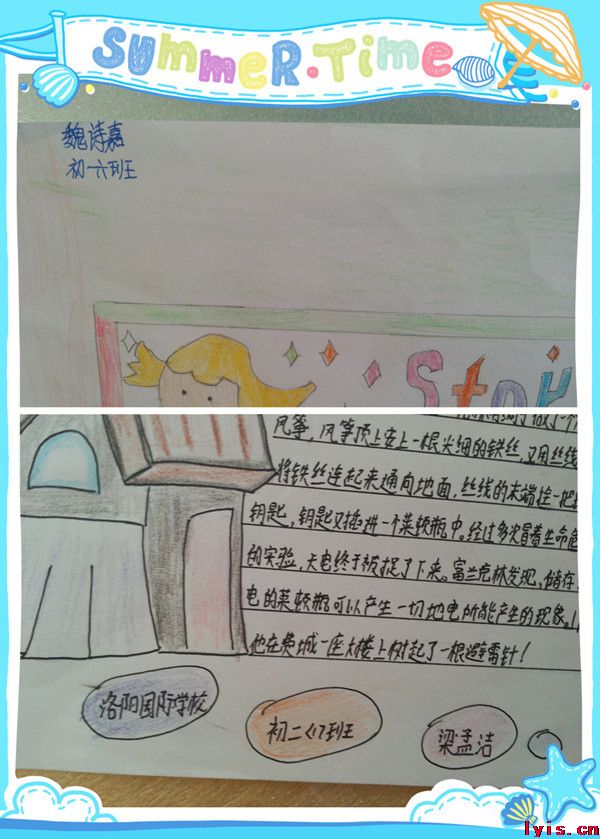 SUMMER·TIME
魏诗嘉
初一六班
Sto
做了一个
风筝，风筝顶上安上一根尖细的铁丝，又用丝线
将铁丝连起来通向地面，丝线的末端拴一把
钥匙，钥匙又插进一个莱顿瓶中。经过多次冒着生命危
的实验，天电终于被捉了下来。富兰克林发现，储存
电的莱顿瓶可以产生一切地电所能产生的现象。
他在费城一座大楼上树起了一根避雷针！
洛阳国际学校
初二<1>班
梁孟洁
lyis.cn